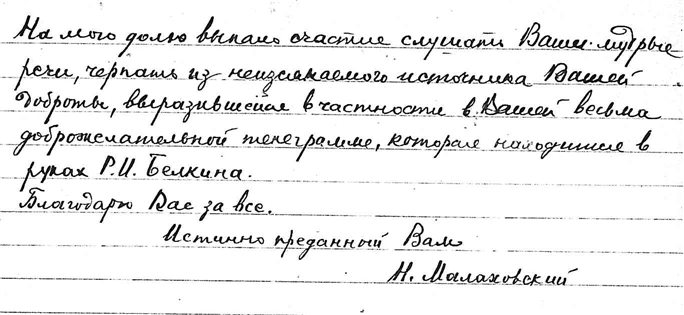 На мою долю выпало счастие слушать Ваши мудрые
речи, черпать из неиссякаемого источника Вашей
доброты, выразившейся в частности в Вашей весьма
доброжелательной телеграмме, которая находится в
руках Р.И. Белкина.
Благодарю Вас за все.
Истинно преданный Вам
Н. Малаховский